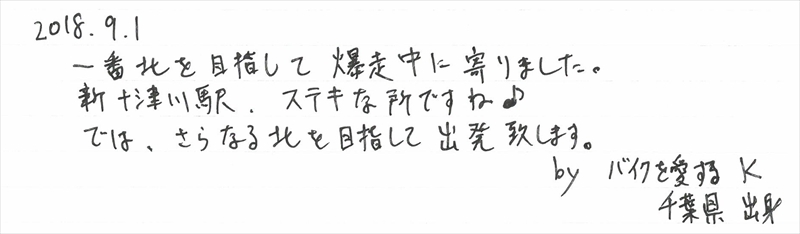 2018.9.1
一番北を目指して爆走中に寄りました。
新十津川駅、ステキな所ですね♪
では、さらなる北を目指して出発致します。
by バイクを愛する K
千葉県 出身